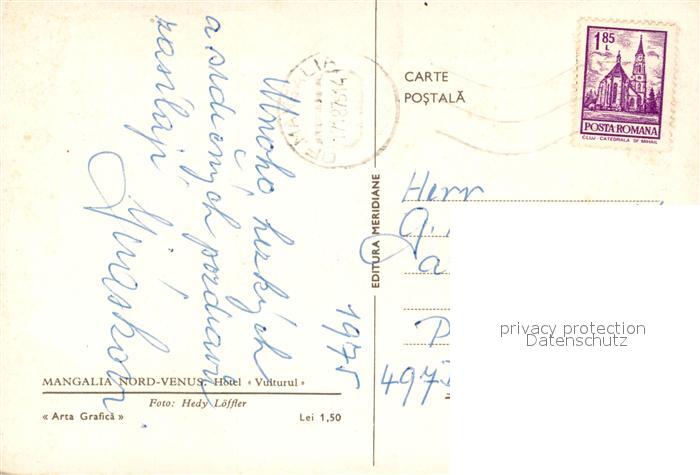 Mnoho hezkých
a srdečných pozdravů
zasílají
Jiráskovi
1975
MANGALIA NORD-VENUS. Hotel « Vulturul »
Foto: Hedy Löffler
« Arta Grafică »
Lei 1,50
EDITURA MERIDIANE
CARTE
POȘTALĂ
1 85
L
POSTA ROMANA
CLUJ - CATEDRALA SF. MIHAIL
Herr
G.
privacy protection
Datenschutz
497